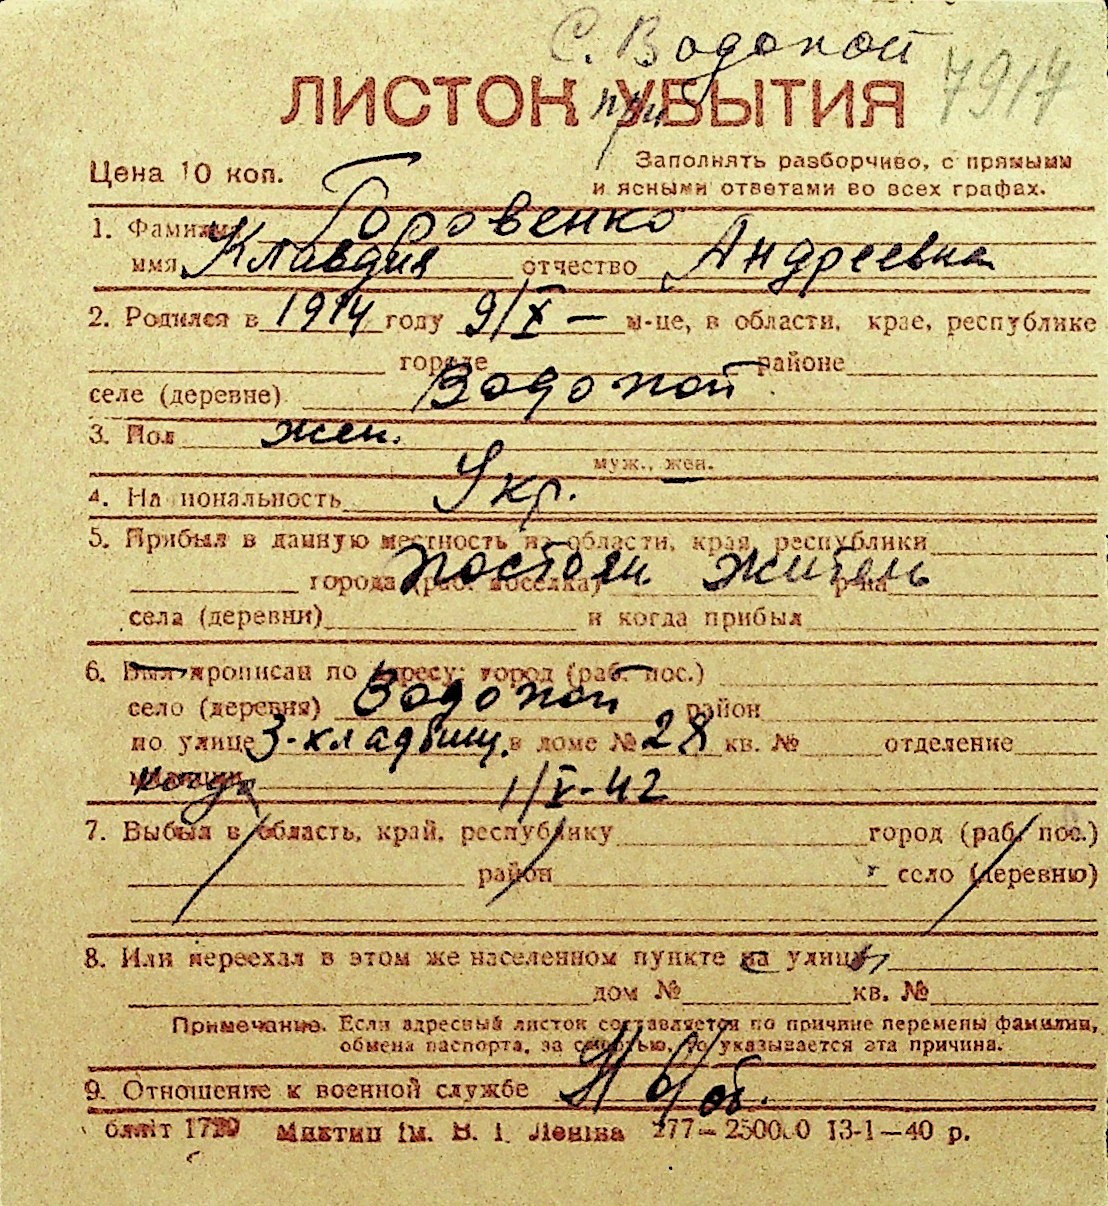 с. Водопой
ЛИСТОК УБЫТИЯ
при
7917
Цена 10 коп.
Заполнять разборчиво, с прямыми
и ясными ответами во всех графах.
1. Фамилия Горовенко
имя Клавдия отчество Андреевна
2. Родился в 1914 году 9/X — м-це, в области, крае, республике
городе районе
селе (деревне) Водопой
3. Пол жен.
муж., жен.
4. Национальность Укр.
5. Прибыл в данную местность из области, края, республики
города (раб. поселка) р-на
постоян житель
села (деревни) и когда прибыл
6. Был прописан по адресу: город (раб. пос.)
село (деревня) Водопой район
по улице 3-кладбищ. в доме № 28 кв. № отделение
милиции
когда 1/V-42
7. Выбыл в область, край, республику город (раб. пос.)
район село (деревню)
8. Или переехал в этом же населенном пункте на улицу
дом № кв. №
Примечание. Если адресный листок составляется по причине перемены фамилии,
обмена паспорта, за смертью, то указывается эта причина.
9. Отношение к военной службе
обліт 1729 Миктип ім. В. І. Леніна 277—250000 13-1—40 р.